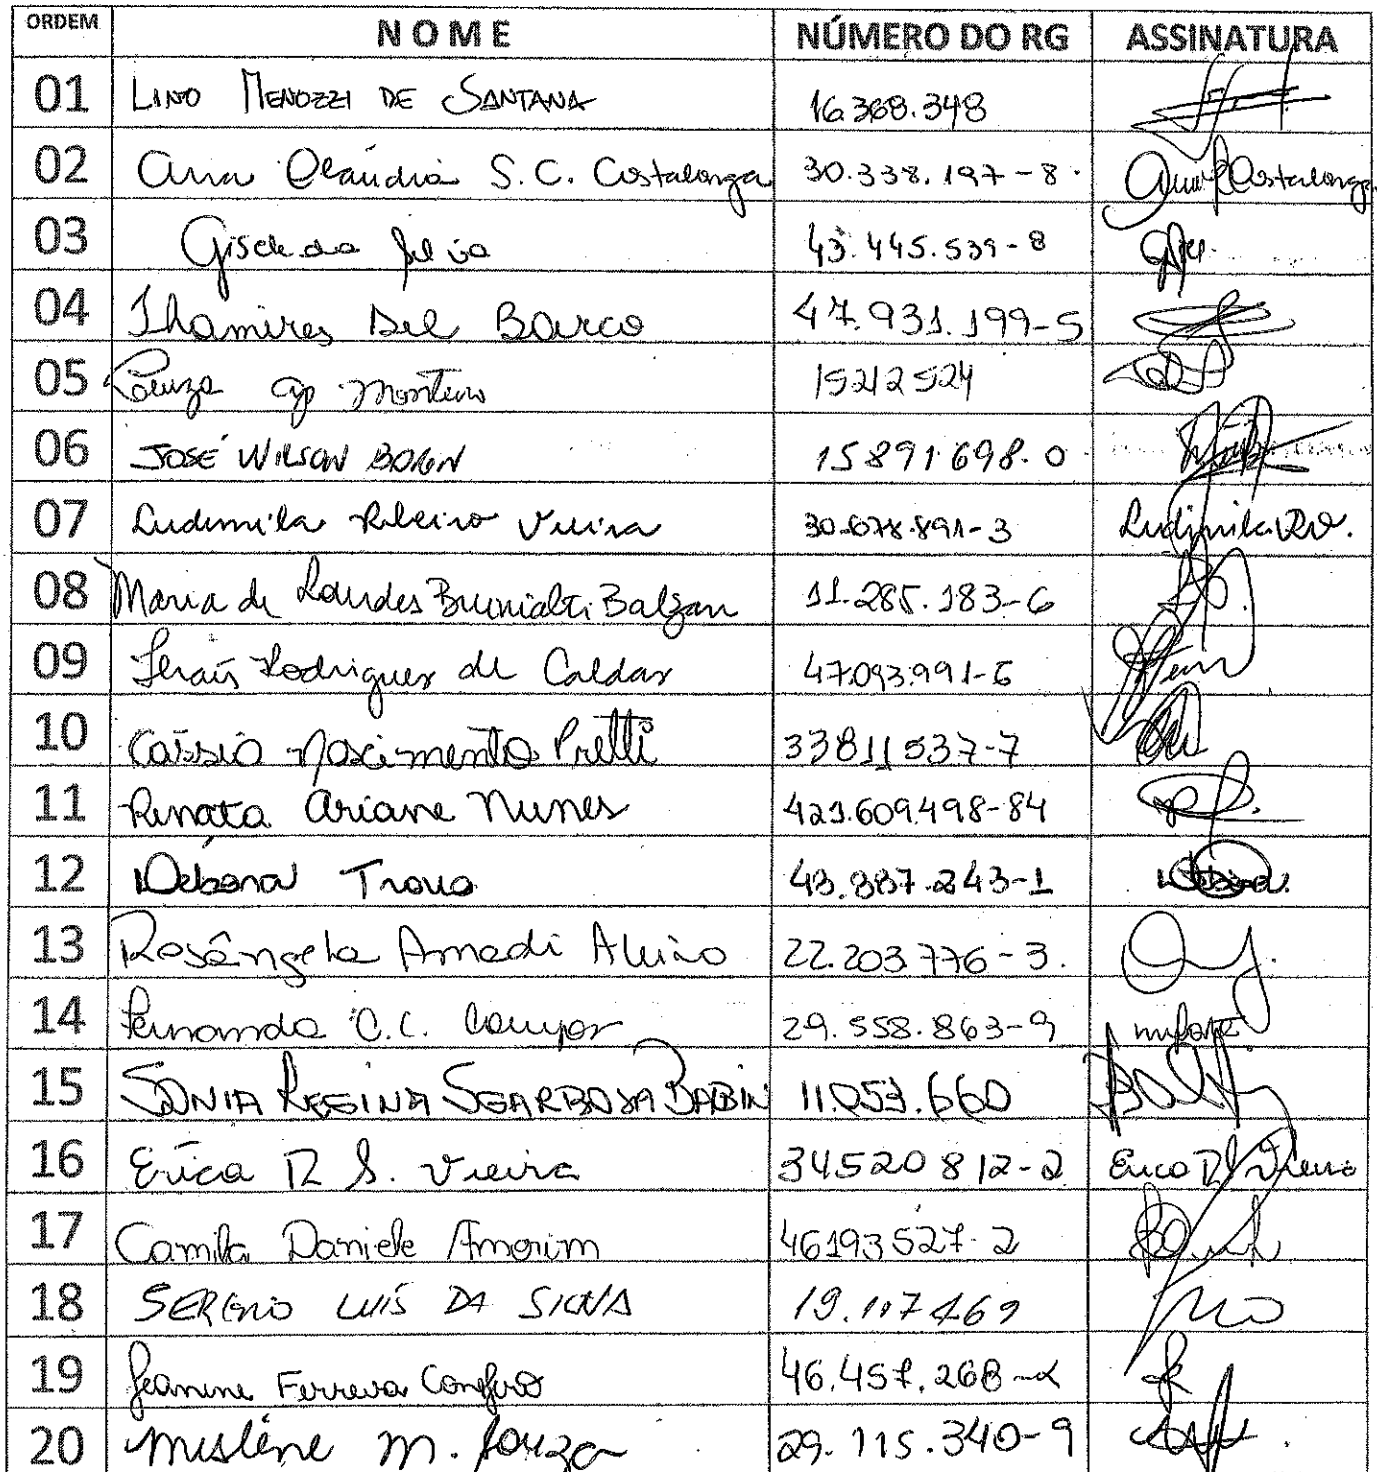 ORDEM NOME NÚMERO DO RG ASSINATURA
01 LINO MENOZZI DE SANTANA 16.368.348
02 Ana Cláudia S.C. Costalonga 30.338.197-8 Costalonga
03 Gisele da Silva 43.445.539-8
04 Thamires Del Barco 47.931.199-5
05 Cleuza Ap Monteiro 15212524
06 JOSÉ WILSON BORIN 15891698-0
07 Ludimila Ribeiro Vieira 30.678.891-3 Ludimila RV.
08 Maria de Lourdes Brunialti Balzan 11.285.183-6
09 Thaís Rodrigues de Caldas 47.093.991-6
10 Cássio Nascimento Pretti 33811537-7
11 Renata Ariane Nunes 421.609.498-84
12 Débora Trovo 43.387.243-1 Débora.
13 Rosângela Amadi Aluizo 22.203.776-3.
14 Fernanda C.C. Campos 29.558.863-9
15 SONIA REGINA SGARBOSA BABIN 11.053.660
16 Erica R S. Vieira 34520812-2 Erica R S Vieira
17 Camila Daniele Amorim 46193527-2
18 SERGIO LUÍS DA SILVA 19.117469
19 Jeanine Ferreira 46.457.268-x
20 Mislene M. Souza 29.115.340-9